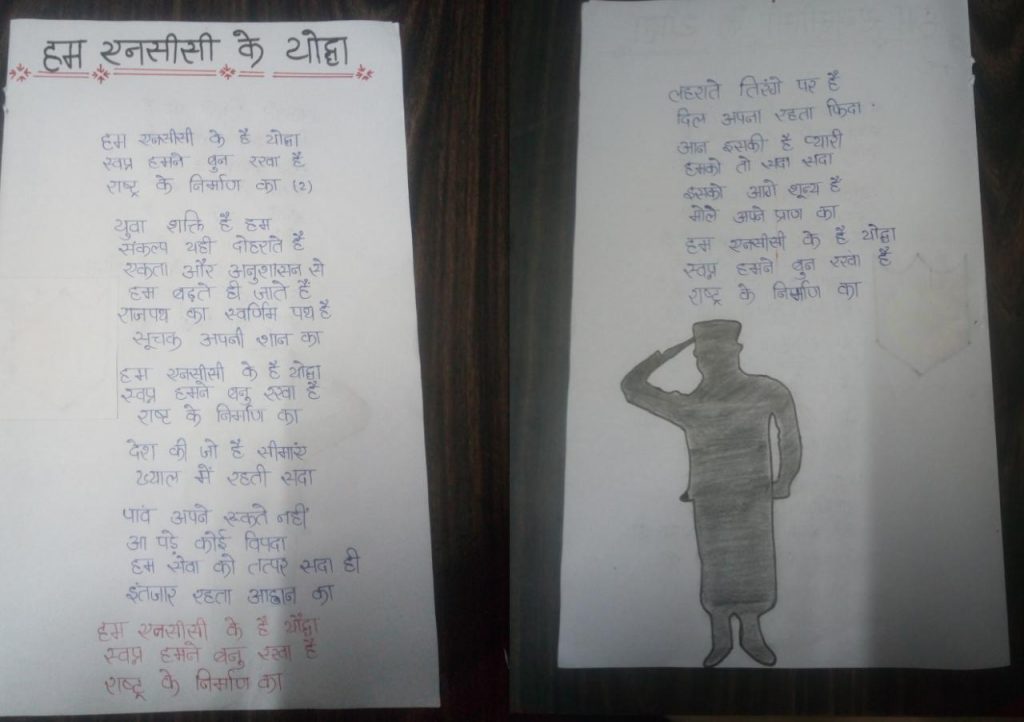 हम एनसीसी के योद्धा
हम एनसीसी के है योद्धा
स्वप्न हमने बुन रखा है
राष्ट्र के निर्माण का (2)
युवा शक्ति है हम
संकल्प यही दोहराते है
एकता और अनुशासन से
हम बढ़ते ही जाते है
राजपथ का स्वर्णिम पथ है
सूचक अपनी शान का
हम एनसीसी के है योद्धा
स्वप्न हमने बनु रखा है
राष्ट के निर्माण का
देश की जो है सीमाएं
ख्याल में रहती सदा
पांव अपने रूकते नहीं
आ पड़े कोई विपदा
हम सेवा को तत्पर सदा ही
इंतजार रहता आह्वान का
हम एनसीसी के है योद्धा
स्वप्न हमने बनु रखा है
राष्ट्र के निर्माण का
लहराते तिरंगे पर है
दिल अपना रहता फिदा
आन इसकी है प्यारी
हमको तो सदा सदा
इसको आगे शून्य है
मोले अपने प्राण का
हम एनसीसी के है योद्धा
स्वप्न हमने बुन रखा है
राष्ट्र के निर्माण का